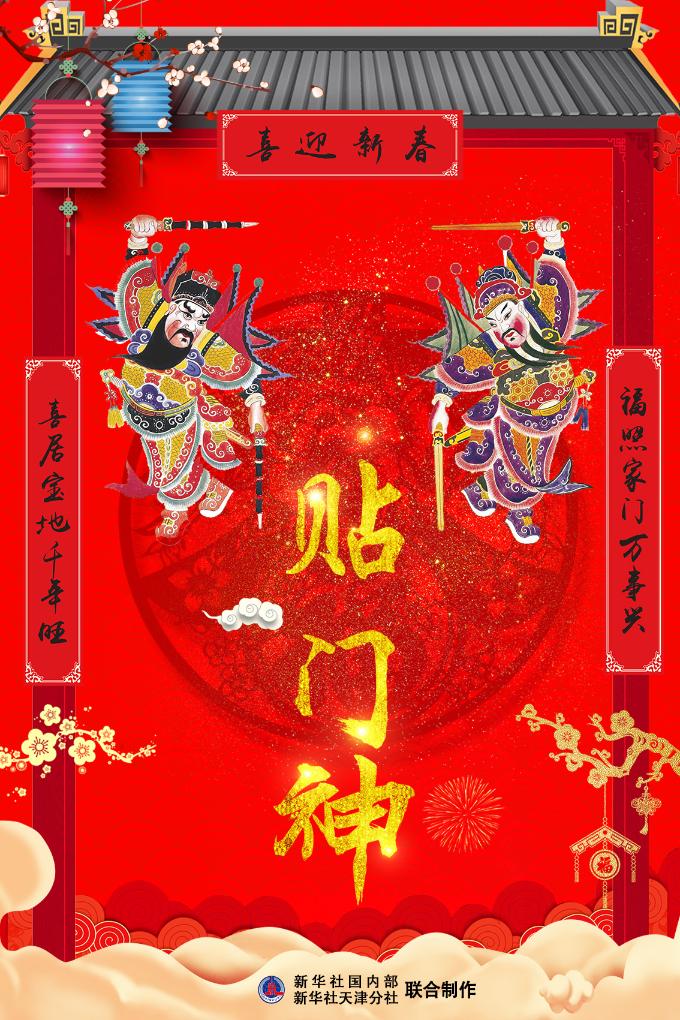 喜迎新春
福照家门万事兴
喜居宝地千年旺
贴门神
福
新华社国内部
新华社天津分社
联合制作